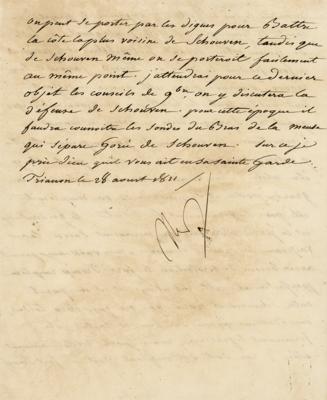 on peut se porter par les digues pour battre
la côte la plus voisine de Schouven, tandis que
de Schouven même on se porteroit facilement
au même point. j'attendrai pour ce dernier
objet les conseils de 9bre, on y discutera la
défense de Schouven. pour cette époque il
faudra connoitre les sondes du bras de la meuse
qui sépare Gorée de Schouven. Sur ce je
prie dieu qu'il vous ait en sa sainte Garde.
Trianon le 28 aoust 1811